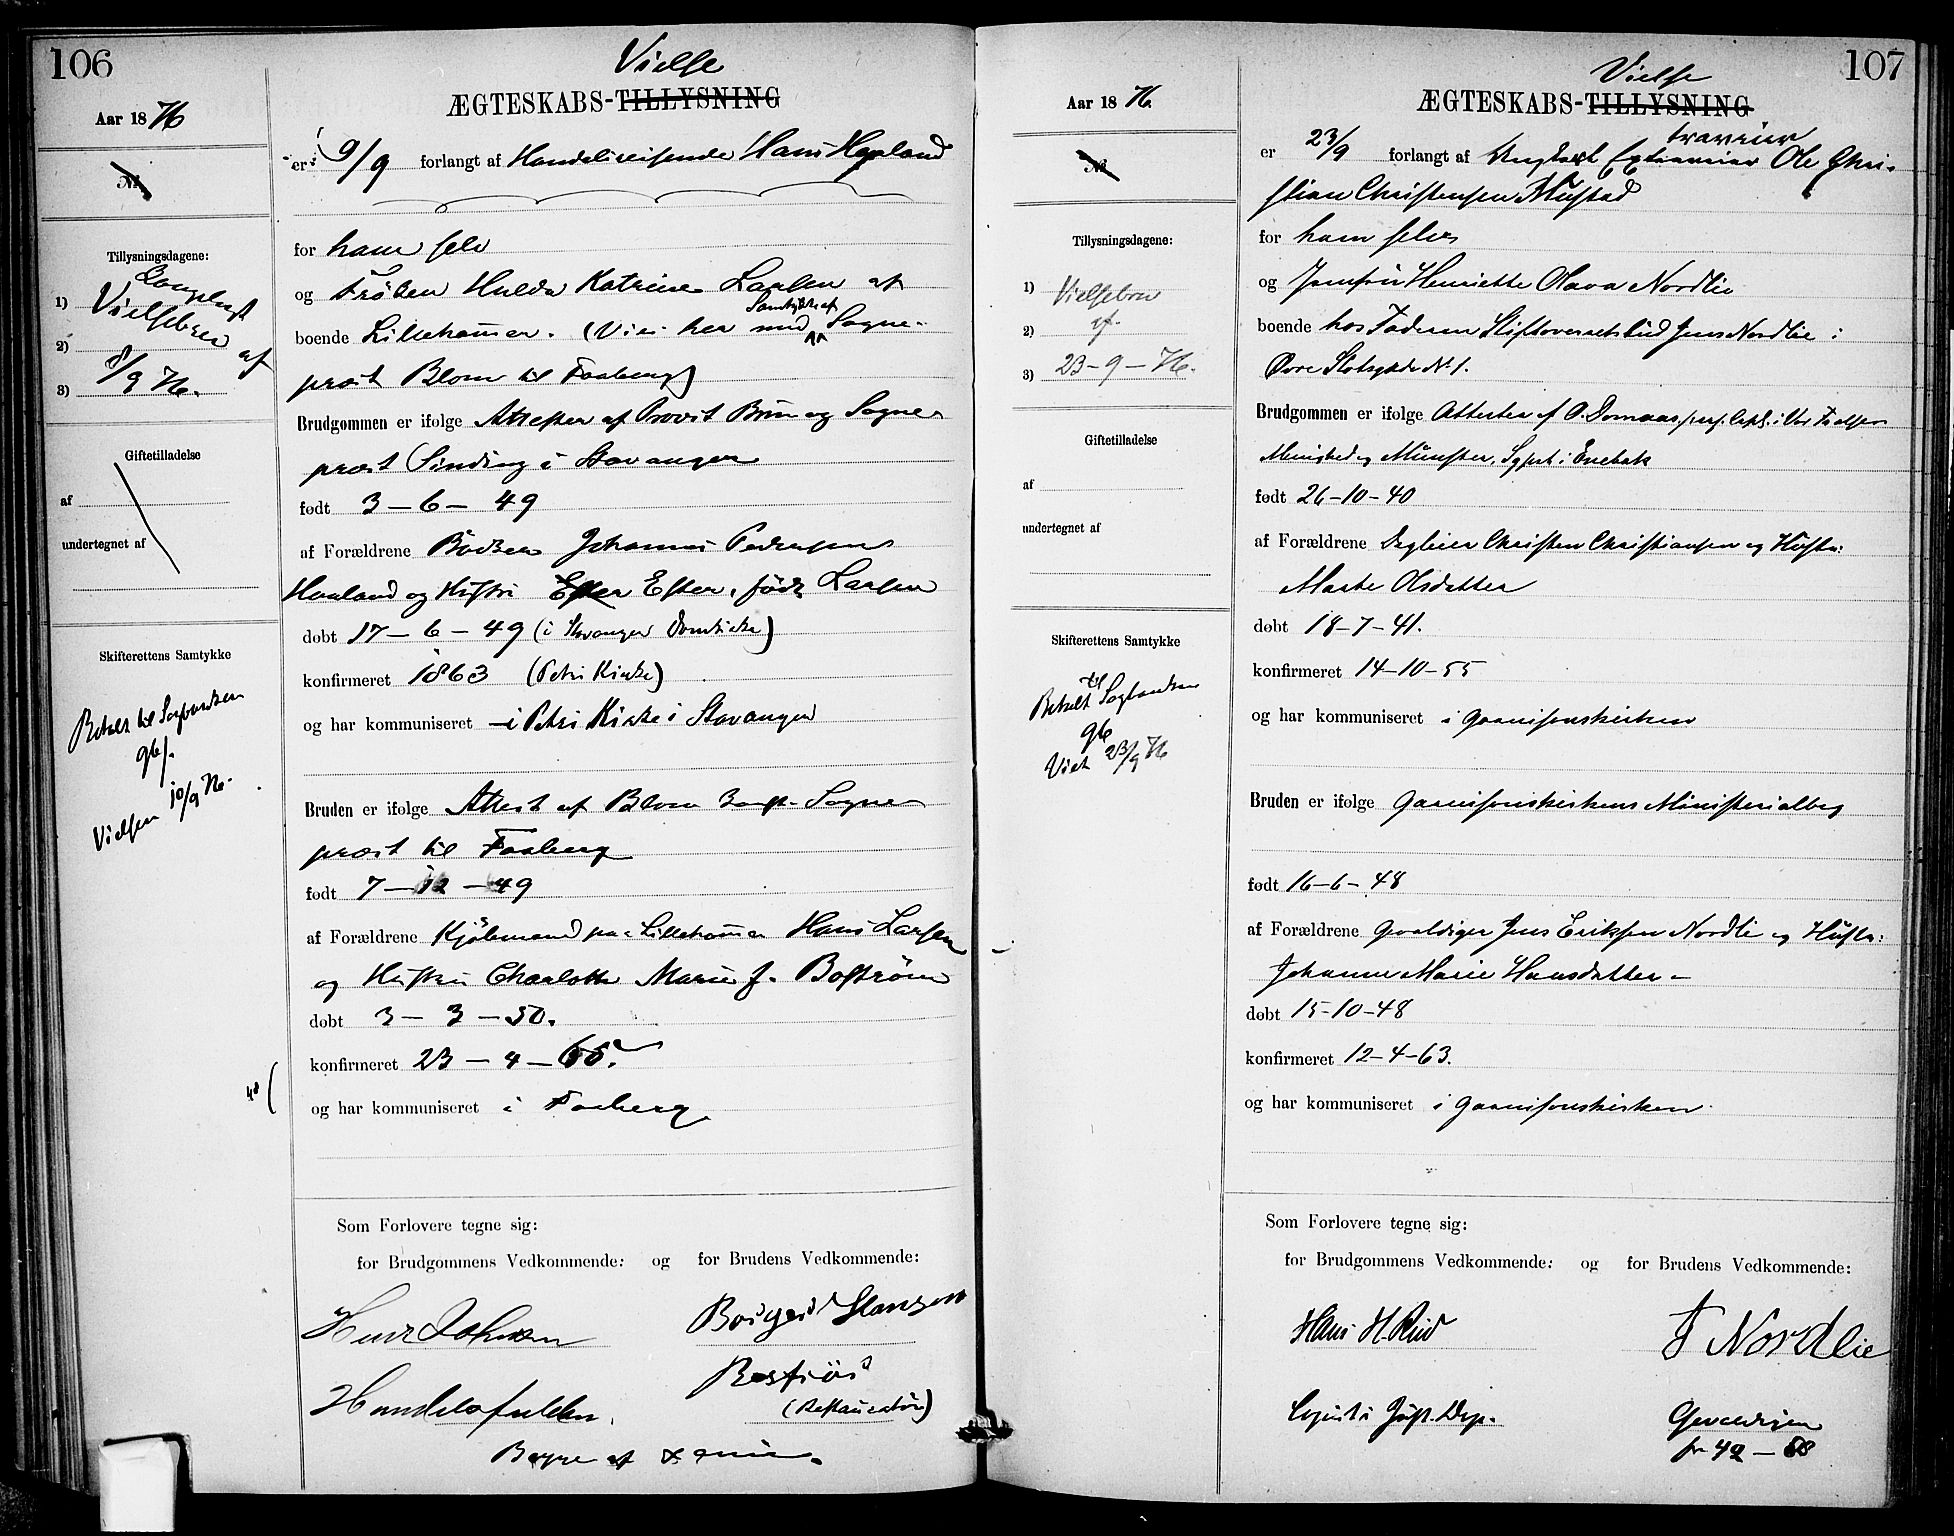 106
Vielse
Aar 1876
ÆGTESKABS-TILLYSNING
No
er 9/9 forlangt af Handelsreisende Hans Haaland
for ham selv
og Frøken Hulda Katrine Larsen af
boende Lillehammer. (Vies her med Samtykke af Sogne-
præst Blom til Faaberg)
Tillysningsdagene:
1)
Vielsebrev af
2)
8/9 76.
3)
Giftetilladelse
af
undertegnet af
Brudgommen er ifølge Attester af Provst Brun og Sogne-
præst Sinding i Stavanger
født 3-6-49
af Forældrene Bødker Johannes Pedersen
Haaland og Hustru Ester, født Larsen
døbt 17-6-49 (i Stavanger Domkirke)
konfirmeret 1863 (Petri Kirke)
og har kommuniseret i Petri Kirke i Stavanger
Skifterettens Samtykke
Betalt til
Vielsen 10/9 76.
Bruden er ifølge Attest af Blom Sogne-
præst til Faaberg
født 7-12-49
af Forældrene Kjøbmand paa Lillehammer Hans Larsen
og Hustru Charlotte Marie f. Boström
døbt 3-3-50.
konfirmeret 23-4-65.
og har kommuniseret i Faaberg
Som Forlovere tegne sig:
for Brudgommens Vedkommende: og for Brudens Vedkommende:
(Restauratør)
107
Vielse
Aar 1876.
ÆGTESKABS-TILLYSNING
No
er 23/9 forlangt af Ungkarl Ole Chri-
stian Christensen Mustad
for ham selv
og Jomfru Henriette Olava Nordlie
boende hos Faderen Stiftoverretsbud Jens Nordlie i
Øvre Slotsgade No 1.
Tillysningsdagene:
1)
Vielsebrev
2) af
3) 23-9-76.
Giftetilladelse
af
undertegnet af
Brudgommen er ifølge Attester af O. Domaas, pers. Capl. i Vor Frelsers
Menighed og Münster, Sgpst i Enebak
født 26-10-40
af Forældrene Christen Christiansen og Hustru:
Marte Olsdatter
døbt 18-7-41.
konfirmeret 14-10-55
og har kommuniseret i Garnisonskirken
Skifterettens Samtykke
Betalt til
Viet 23/9 76
Bruden er ifølge Garnisonskirkens Ministerialbog
født 16-6-48
af Forældrene Gevaldiger Jens Eriksen Nordlie og Hustru:
Johanne Marie Hansdatter
døbt 15-10-48
konfirmeret 12-4-63.
og har kommuniseret i Garnisonskirken
Som Forlovere tegne sig:
for Brudgommens Vedkommende: og for Brudens Vedkommende:
Hans H. Rud
J Nordlie
Gevaldiger